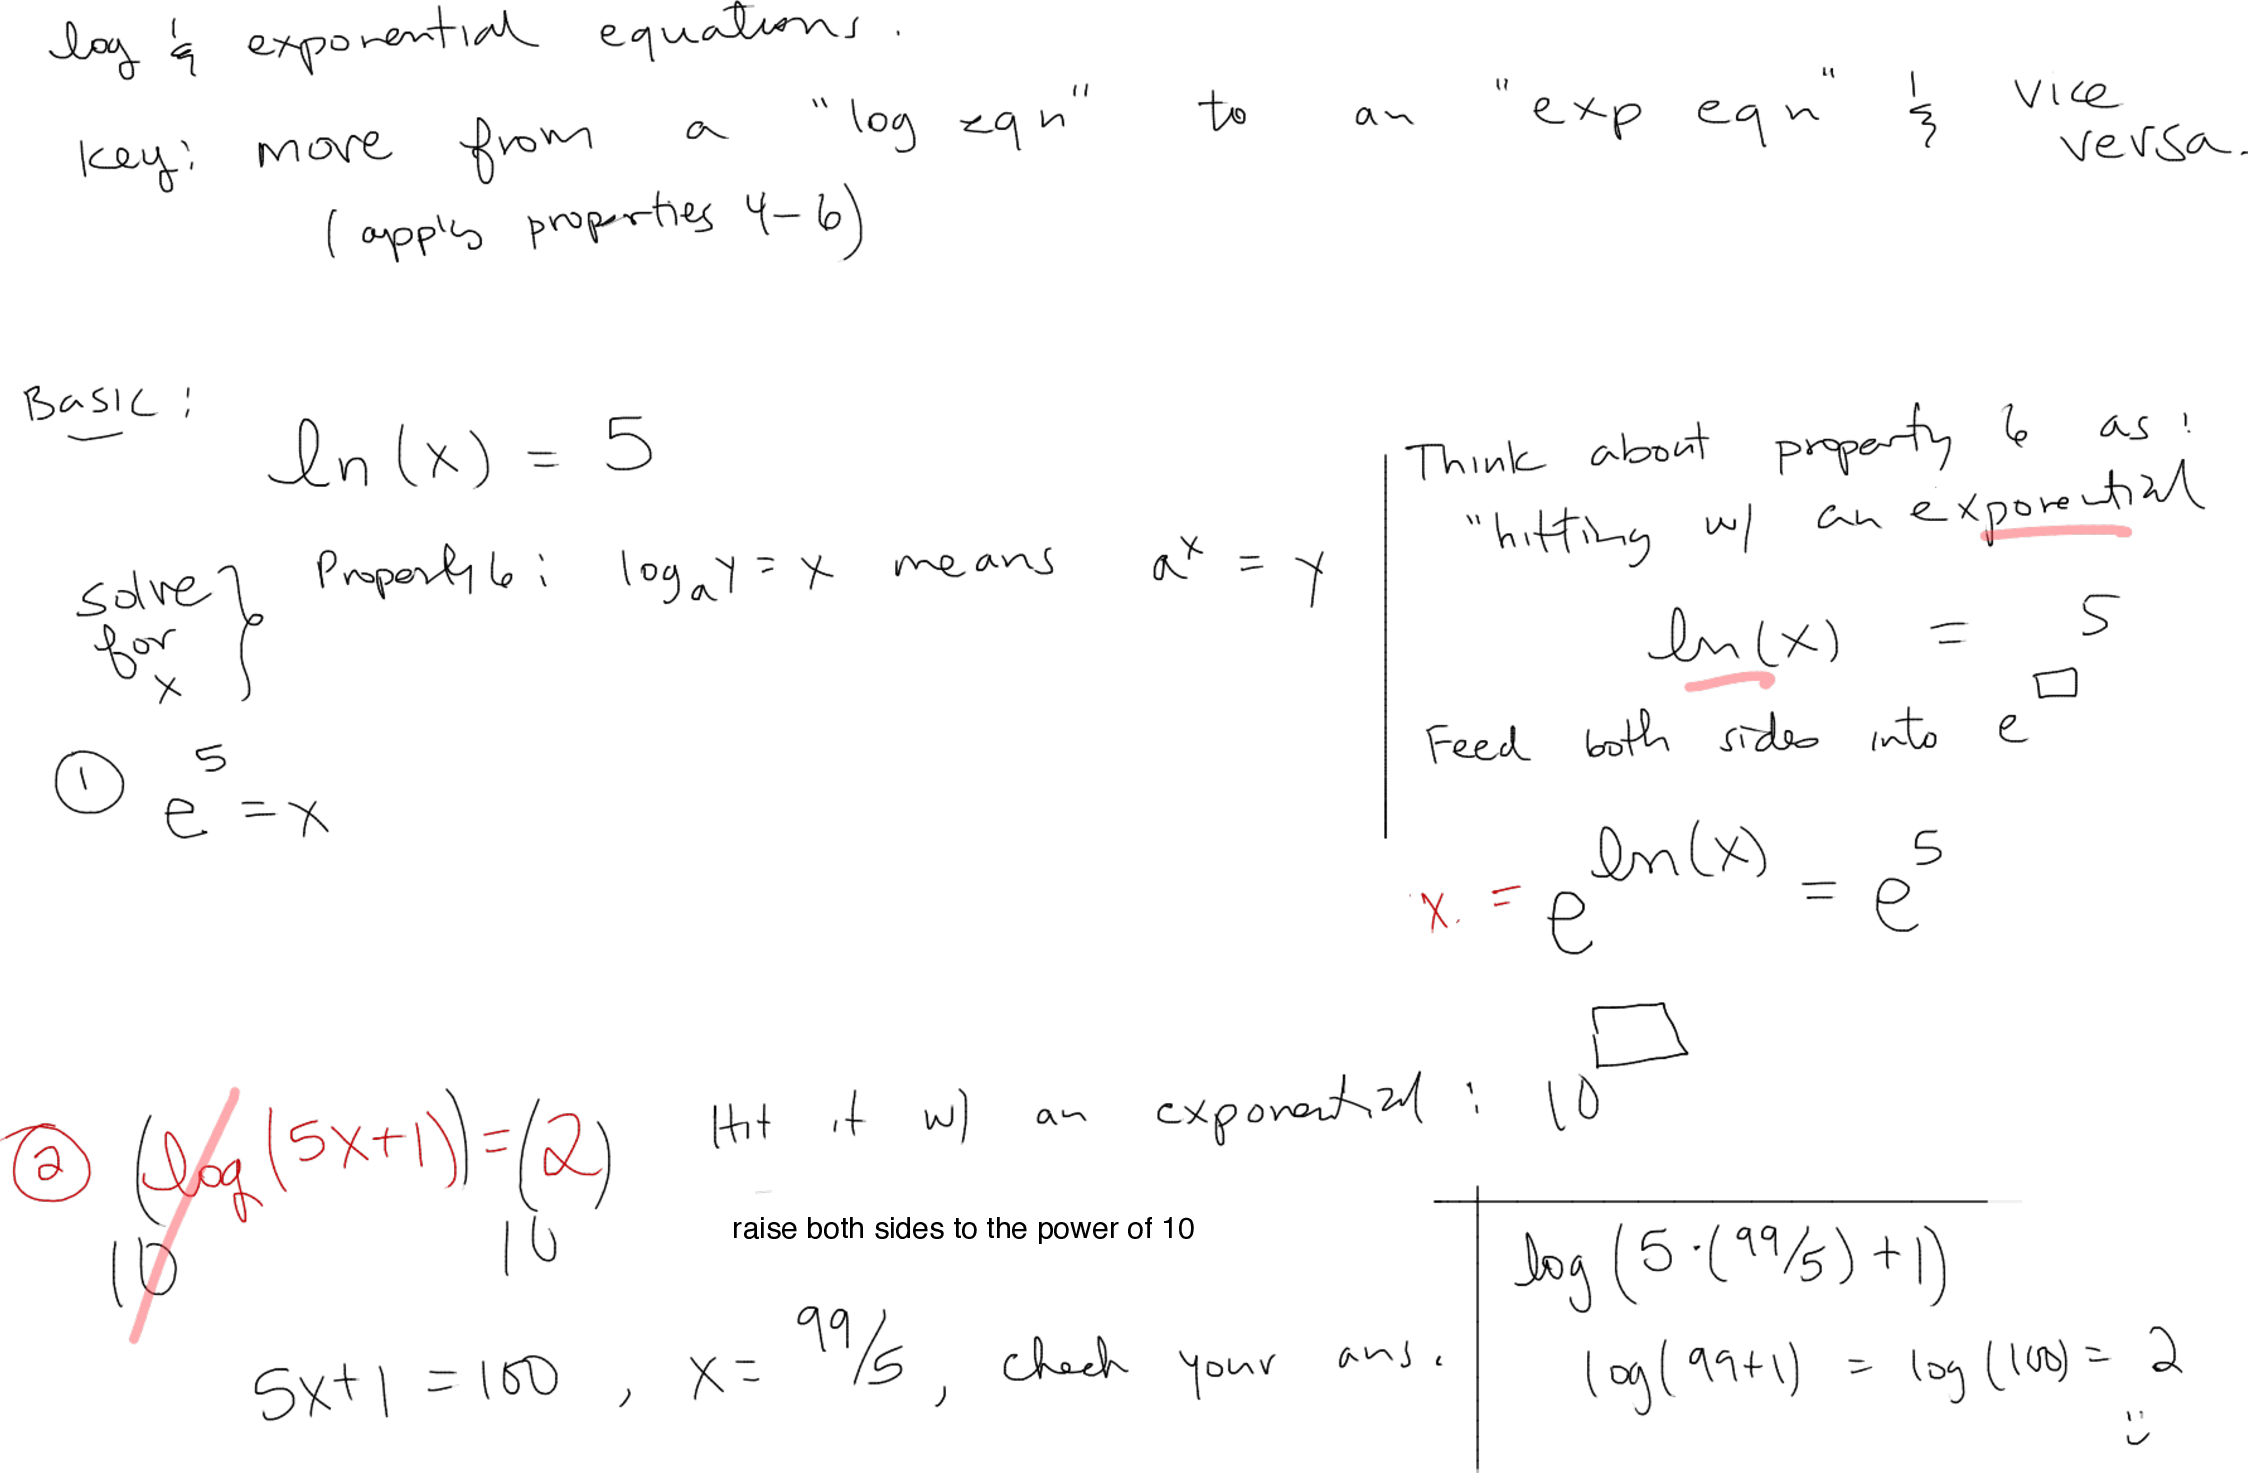 log & exponential equations.
Key: move from a "log eqn" to an "exp eqn" & vice versa.
(apply properties 4-6)
Basic:
ln(x) = 5
solve for x } Property 6: log_a y = x means a^x = y
① e^5 = x
Think about property 6 as:
"hitting w/ an exponential
ln(x) = 5
Feed both sides into e^□
x. = e^ln(x) = e^5
② 10^(log(5x+1)) = 10^(2) Hit it w/ an exponential: 10^□
raise both sides to the power of 10
5x+1 = 100, x = 99/5, check your ans.
log(5·(99/5)+1)
log(99+1) = log(100) = 2